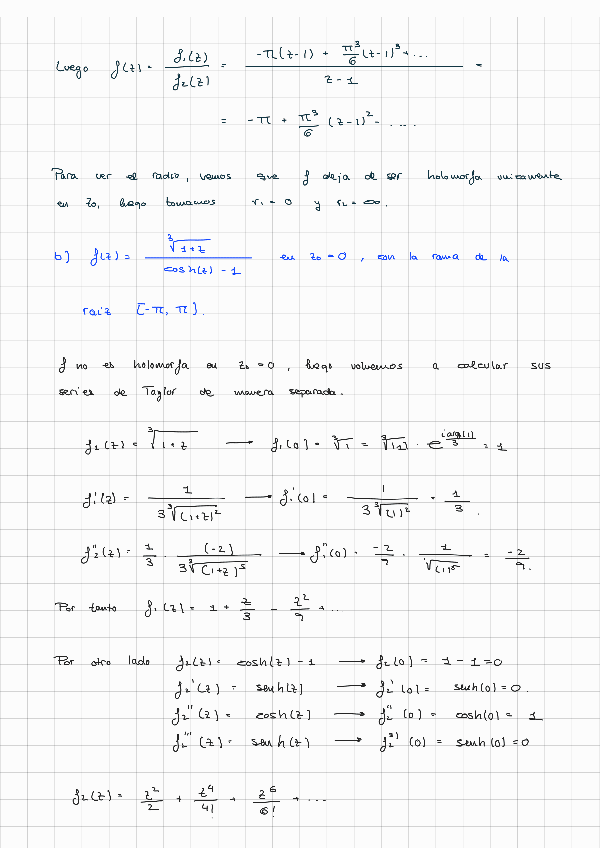 Luego f(z) = f₁(z)/f₂(z) = (-π(z-1) + π³/6 (z-1)³ + ...)/(z-1) =
= -π + π³/6 (z-1)² - ....
Para ver el radio, vemos que f deja de ser holomorfa unicamente
en z₀, luego tomamos r₁ = 0 y r₂ = ∞.
b) f(z) = ∛(1+z)/(cosh(z) - 1) en z₀ = 0, con la rama de la
raiz [-π, π).
f no es holomorfa en z₀ = 0, luego volvemos a calcular sus
series de Taylor de manera separada.
f₁(z) = ∛(1+z) → f₁(0) = ∛1 = ∛|1| · e^(i arg(1)/3) = 1
f₁'(z) = 1/(3∛(1+z)²) → f₁'(0) = 1/(3∛(1)²) = 1/3.
f₂''(z) = 1/3 · (-2)/(3∛(1+z)⁵) → f₁''(0) = -2/9 · 1/√(1)⁵ = -2/9.
Por tanto f₁(z) = 1 + z/3 - z²/9 + ..
Por otro lado f₂(z) = cosh(z) - 1 → f₂(0) = 1 - 1 = 0
f₂'(z) = senh(z) → f₂'(0) = senh(0) = 0.
f₂''(z) = cosh(z) → f₂''(0) = cosh(0) = 1
f₂'''(z) = senh(z) → f₂³⁾(0) = senh(0) = 0
f₂(z) = z²/2 + z⁴/4! + z⁶/6! + ...